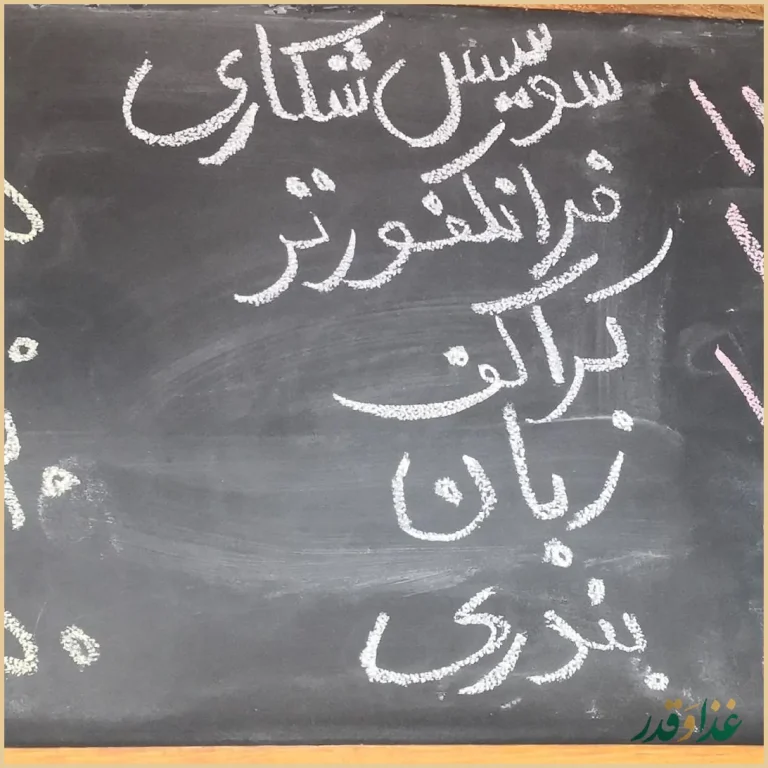 سوسیس شکاری
فرانکفورتر
کراکف
زبان
بندری
غذا و قدر